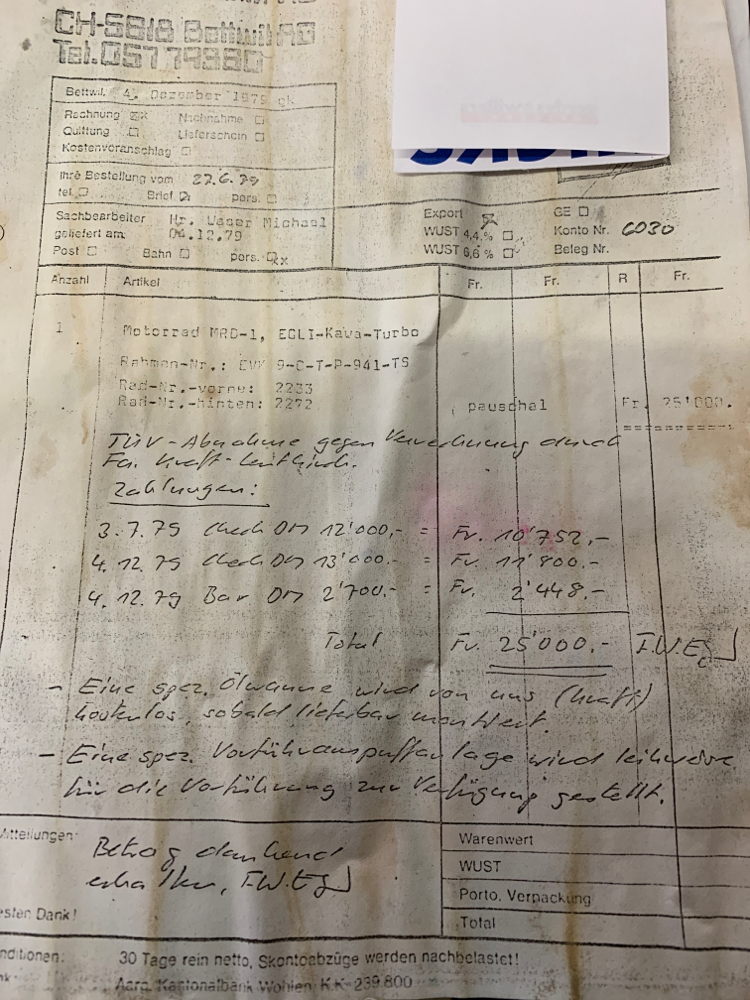 CH-5618 Bettwil AG
Tel. 057 79380
Bettwil, 4. Dezember 1979 gk
Rechnung ☒x Nachnahme ☐
Quittung ☐ Lieferschein ☐
Kostenvoranschlag ☐
Ihre Bestellung vom 27.6.79
tel. ☐ Brief ☒ pers. ☐
Sachbearbeiter Hr. Weser Michael
geliefert am: 04.12.79
Post ☐ Bahn ☐ pers. ☐x
Export ☒ GE ☐
WUST 4,4 % ☐ Konto Nr. 6030
WUST 6,6 % ☐ Beleg Nr.
Anzahl Artikel Fr. Fr. R Fr.
1 Motorrad MRD-1, EGLI-Kawa-Turbo
Rahmen-Nr.: EVK 9-C-T-P-941-TS
Rad-Nr.-vorne: 2233
Rad-Nr.-hinten: 2272 pauschal Fr. 25'000.
TÜV-Abnahme gegen Verrechnung durch
Fa. Kraft-
Zahlungen:
3.7.79 Check DM 12'000,- = Fr. 10'752,-
4.12.79 Check DM 13'000.- = Fr. 11'800.-
4.12.79 Bar DM 2'700.- = Fr. 2'448.-
Total Fr. 25'000.-
- Eine spez. Ölwanne wird von uns (Kraft)
kostenlos, sobald lieferbar montiert.
- Eine spez. Vorführauspuffanlage wird leihweise
für die Vorführung zur Verfügung gestellt.
Mitteilungen:
Betrag dankend
erhalten, F.W.Egli
Warenwert
WUST
Porto, Verpackung
Total
esten Dank!
nditionen: 30 Tage rein netto, Skontoabzüge werden nachbelastet!
nk Aarg. Kantonalbank Wohlen K.K. 239.800